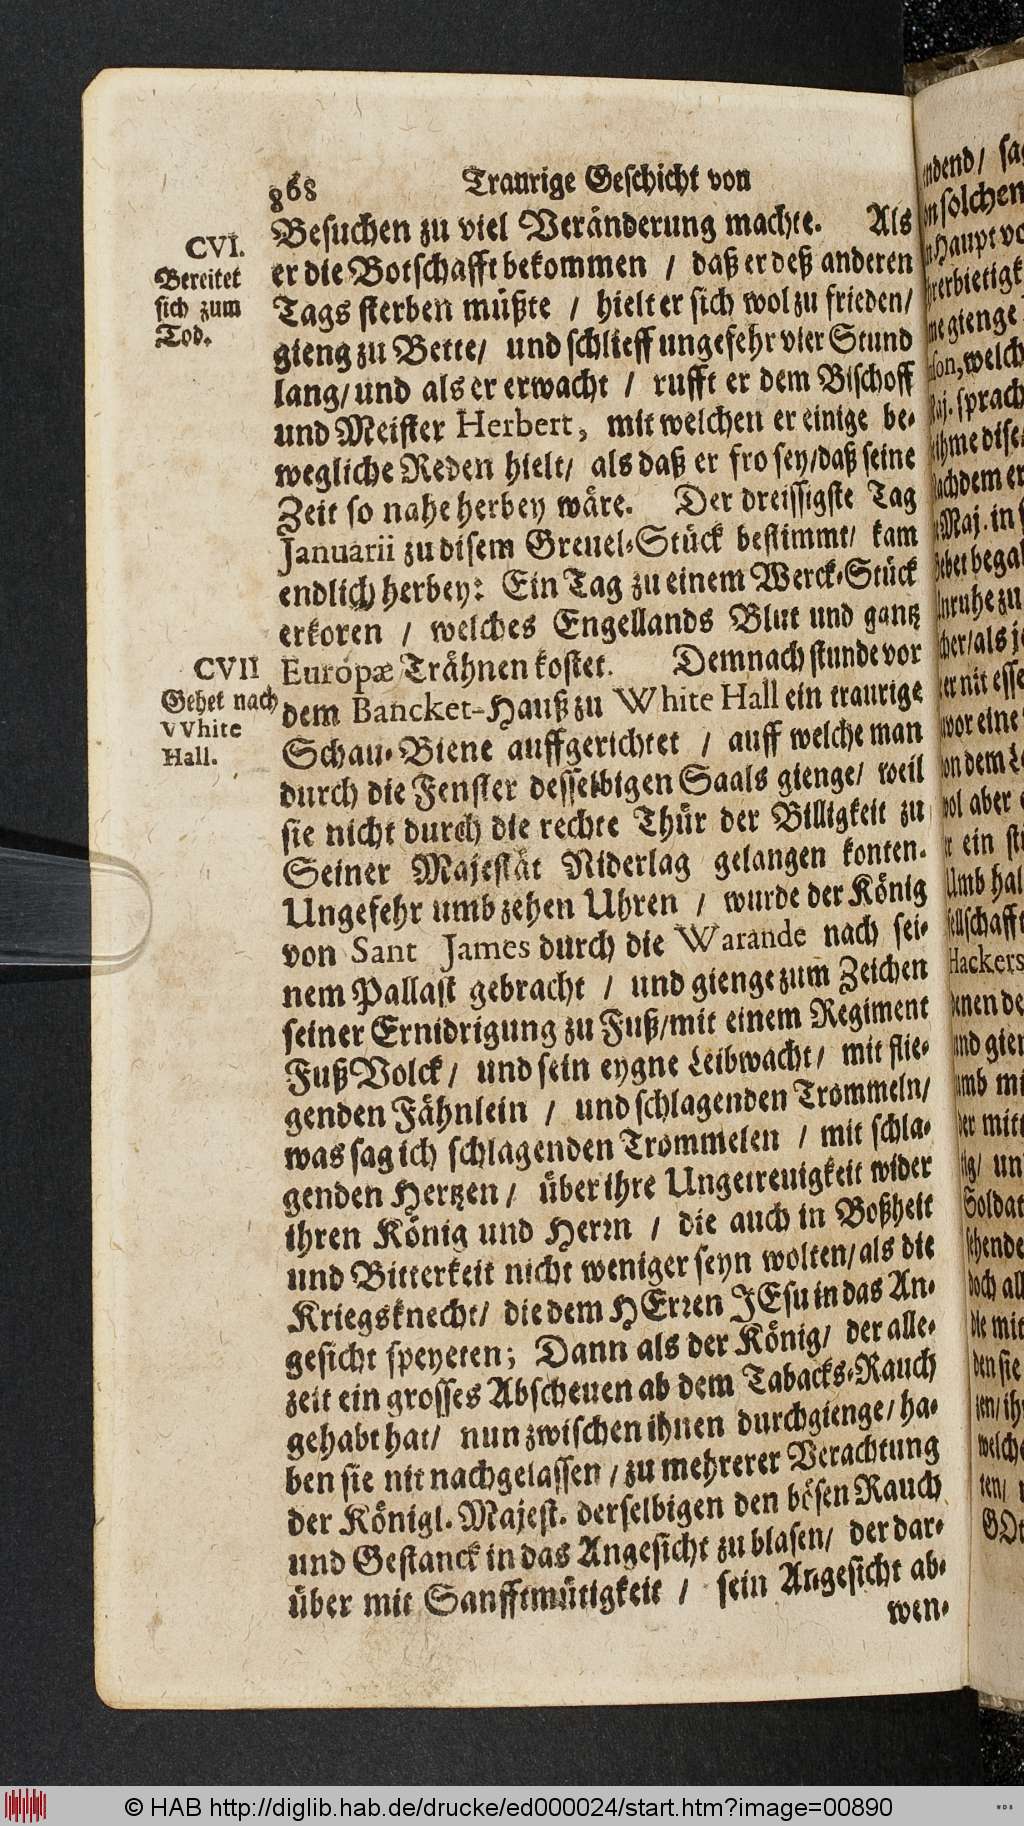 868
Traurige Geschicht von
CVI.
Bereitet
sich zum
Tod.
Besuchen zu viel Veränderung machte. Als
er die Botschafft bekommen / daß er deß anderen
Tags sterben müßte / hielt er sich wol zu frieden/
gieng zu Bette/ und schlieff ungefehr vier Stund
lang/ und als er erwacht / rufft er dem Bischoff
und Meister Herbert, mit welchen er einige be-
wegliche Reden hielt/ als daß er fro sey/daß seine
Zeit so nahe herbey wäre. Der dreissigste Tag
Januarii zu disem Greuel-Stück bestimmt/ kam
endlich herbey: Ein Tag zu einem Werck-Stück
erkoren / welches Engellands Blut und gantz
Europæ Trähnen kostet. Demnach stunde vor
CVII
Gehet nach
VVhite
Hall.
dem Bancket-Hauß zu White Hall ein traurige
Schau-Biene auffgerichtet / auff welche man
durch die Fenster desselbigen Saals gienge/ weil
sie nicht durch die rechte Thür der Billigkeit zu
Seiner Majestät Niderlag gelangen konten.
Ungefehr umb zehen Uhren / wurde der König
von Sant James durch die Warande nach sei-
nem Pallast gebracht / und gienge zum Zeichen
seiner Ernidrigung zu Fuß/mit einem Regiment
Fuß Volck/ und sein eygne Leibwacht/ mit flie-
genden Fähnlein / und schlagenden Trommeln/
was sag ich schlagenden Trommelen / mit schla-
genden Hertzen/ über ihre Ungetreuigkeit wider
ihren König und Herrn / die auch in Boßheit
und Bitterkeit nicht weniger seyn wolten/als die
Kriegsknecht/ die dem HErren JEsu in das An-
gesicht speyeten; Dann als der König/ der alle-
zeit ein grosses Abscheuen ab dem Tabacks-Rauch
gehabt hat/ nun zwischen ihnen durchgienge/ ha-
ben sie nit nachgelassen / zu mehrerer Verachtung
der Königl. Majest. derselbigen den bösen Rauch
und Gestanck in das Angesicht zu blasen/ der dar-
über mit Sanfftmütigkeit / sein Angesicht ab-
wen-
© HAB http://diglib.hab.de/drucke/ed000024/start.htm?image=00890